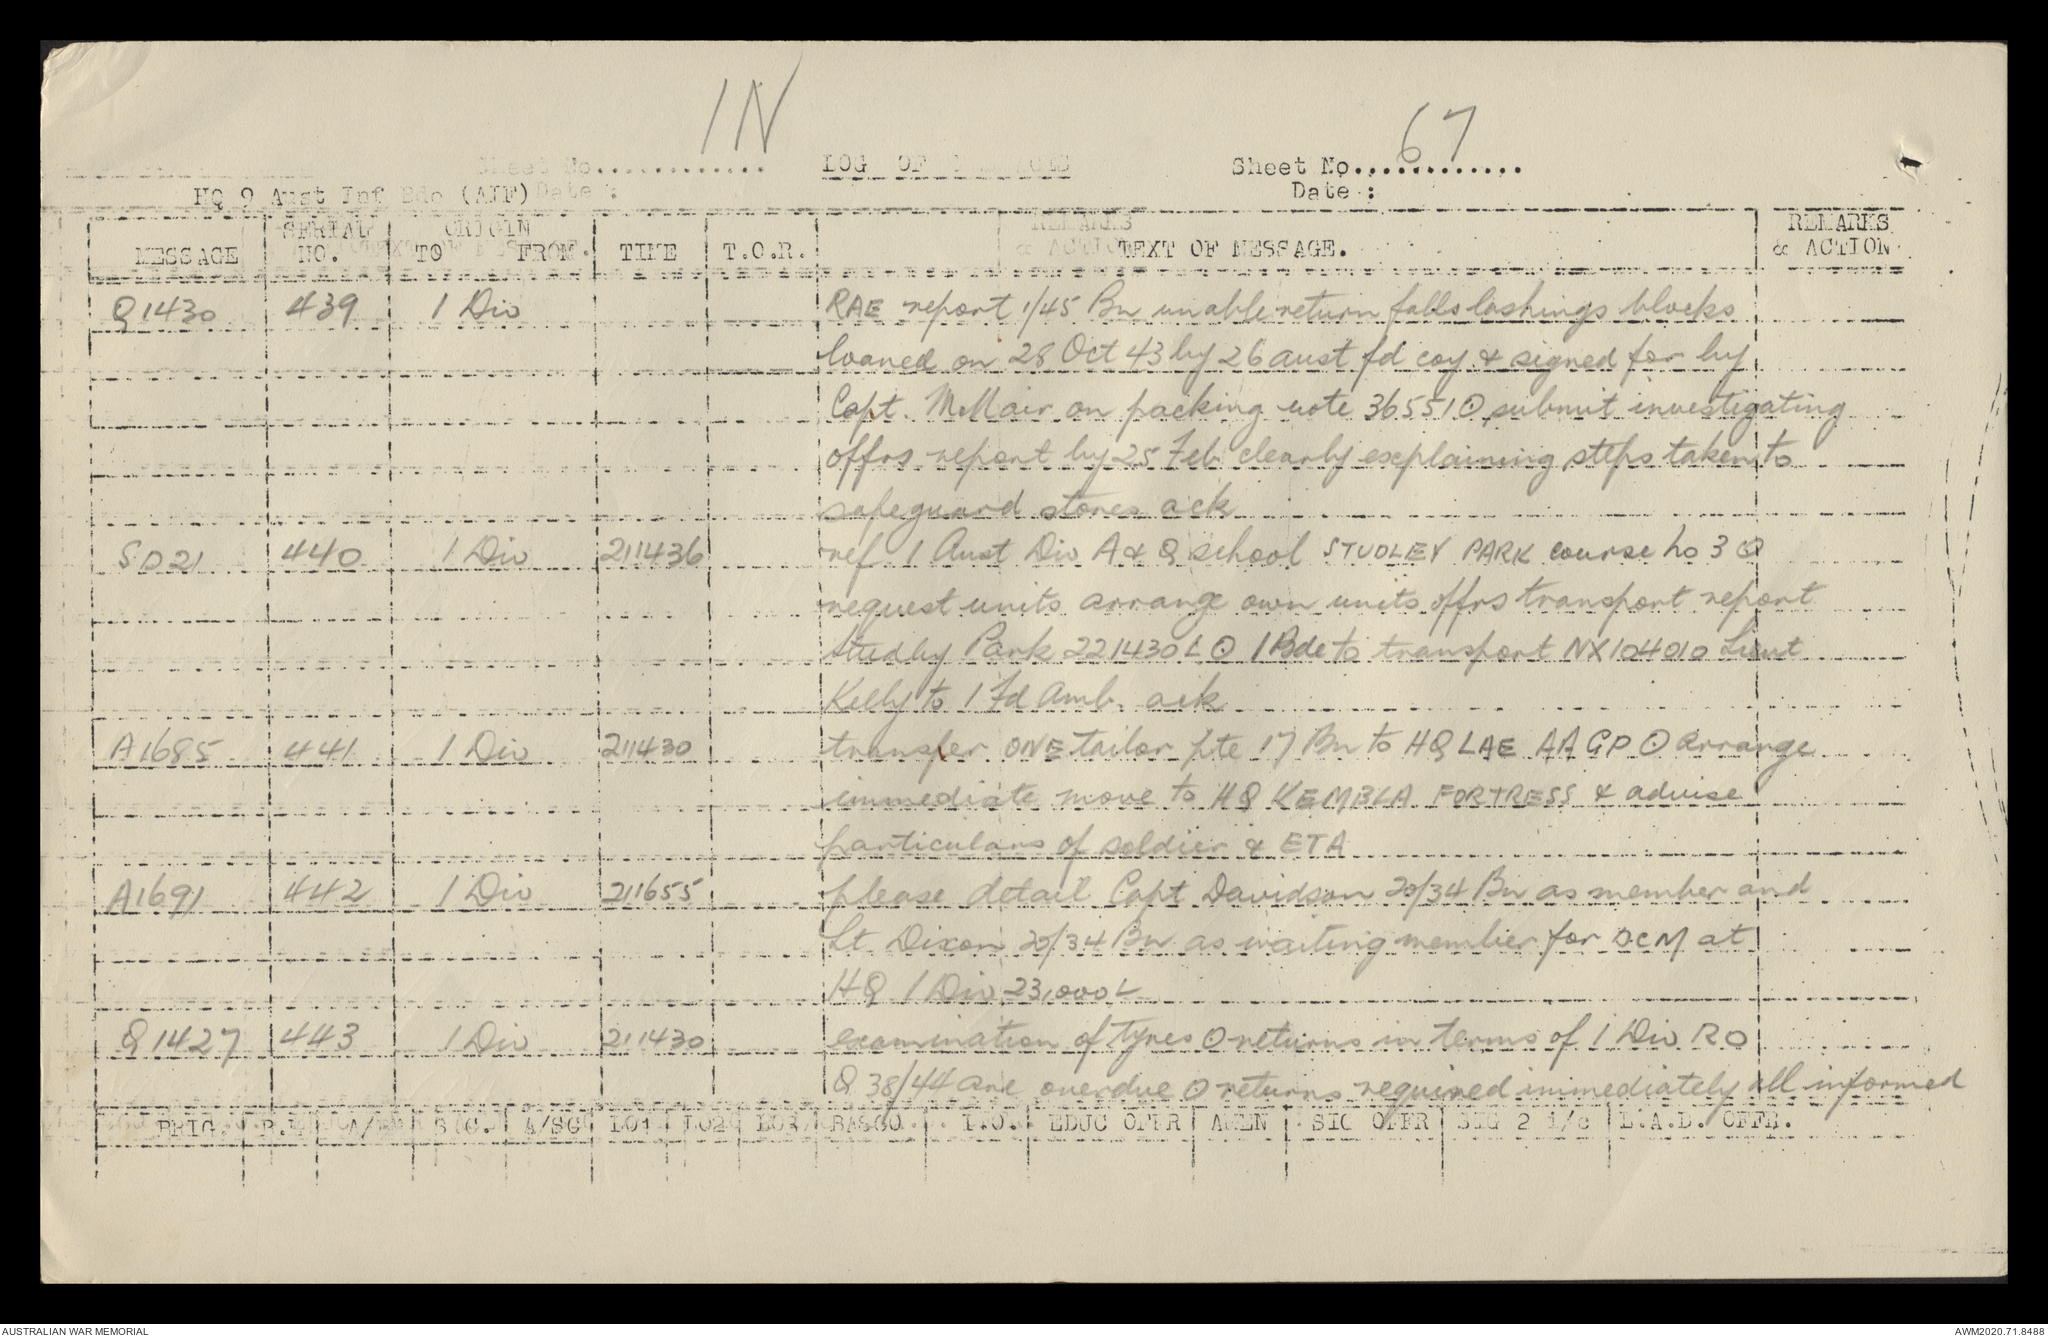 IN
67
Sheet No............. LOG OF MESSAGES Sheet No.............
HQ 9 Aust Inf Bde (AIF) Date : Date :
MESSAGE SERIAL NO. ORIGIN TO FROM. TIME T.O.R. TEXT OF MESSAGE. REMARKS & ACTION
Q1430 439 1 Div RAE report 1/45 Bn unable return falls lashings blocks
loaned on 28 Oct 43 by 26 aust fd coy & signed for by
Capt. McNair on packing note 36551 ⊙ submit investigating
offrs report by 25 Feb clearly explaining steps taken to
safeguard stores ack
SD21 440 1 Div 211436 ref 1 Aust Div A & Q school STUDLEY PARK course no 3 ⊙
request units arrange own units offrs transport report
Studley Park 221430L ⊙ 1 Bde to transport NX104010 Lieut
Kelly to 1 Fd Amb. ack
A1685 441 1 Div 211430 transfer ONE tailor pte 17 Bn to HQ LAE AA GP ⊙ arrange
immediate move to HQ KEMBLA FORTRESS & advise
particulars of soldier & ETA
A1691 442 1 Div 211655 please detail Capt Davidson 20/34 Bn as member and
Lt Dixon 20/34 Bn as waiting member for DCM at
HQ 1 Div 231000L
Q1427 443 1 Div 211430 examination of tyres ⊙ returns in terms of 1 Div RO
Q 38/44 are overdue ⊙ returns required immediately all informed
BRIG. B.M A/ S.C. A/SC IO1 IO2 LO3 BASCO T.O. EDUC OFFR AMEN SIG OFFR SIG 2 i/c L.A.D. OFFR.
AUSTRALIAN WAR MEMORIAL AWM2020.71.8488